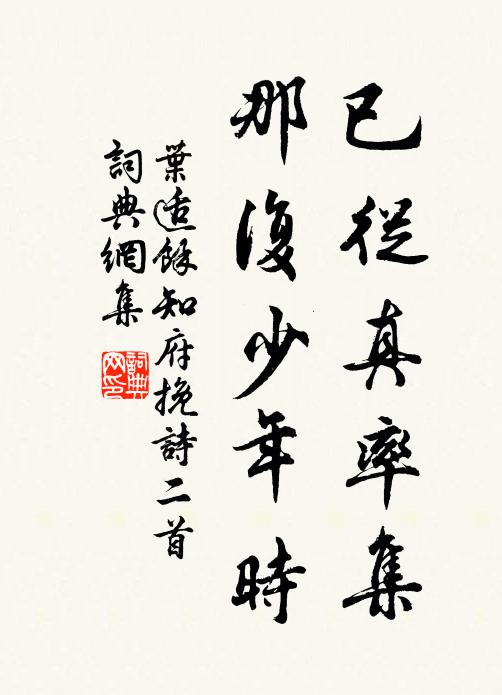 已從真率集
那復少年時
葉適餘知府挽詩二首
詞典網集
詞典
网印